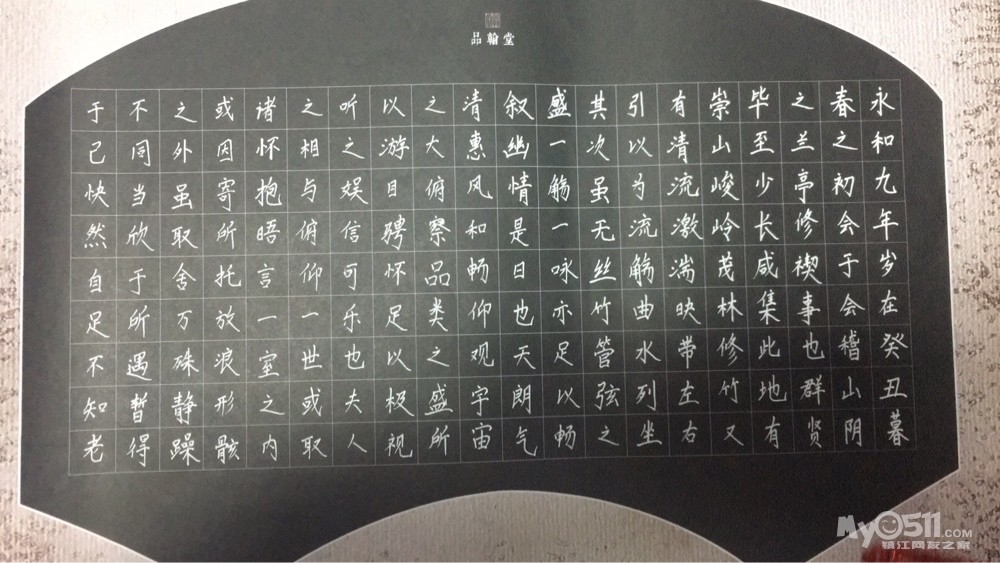 品翰堂
永和九年岁在癸丑暮
春之初会于会稽山阴
之兰亭修禊事也群贤
毕至少长咸集此地有
崇山峻岭茂林修竹又
有清流激湍映带左右
引以为流觞曲水列坐
其次虽无丝竹管弦之
盛一觞一咏亦足以畅
叙幽情是日也天朗气
清惠风和畅仰观宇宙
之大俯察品类之盛所
以游目骋怀足以极视
听之娱信可乐也夫人
之相与俯仰一世或取
诸怀抱晤言一室之内
或因寄所托放浪形骸
之外虽取舍万殊静躁
不同当欣于所遇暂得
于己快然自足不知老
My0511.com
镇江网友之家